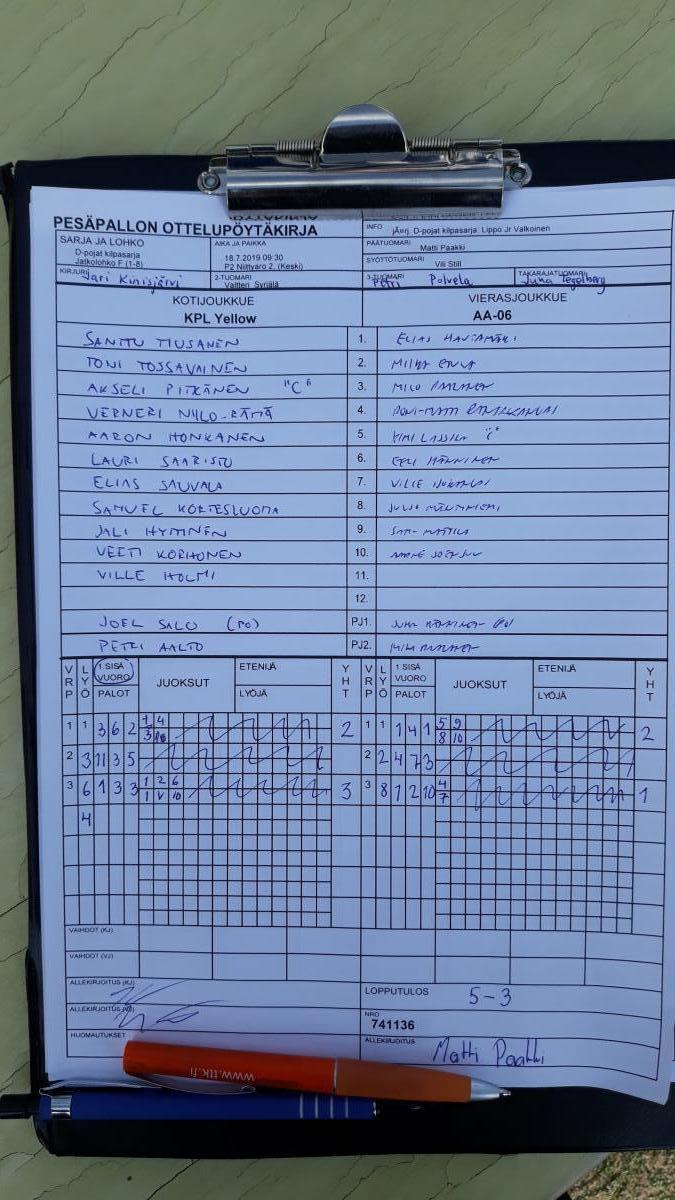 PESÄPALLON OTTELUPÖYTÄKIRJA
INFO järj. D-pojat kilpasarja Lippo Jr Valkoinen
SARJA JA LOHKO
D-pojat kilpasarja
Jatkolohko F (1-8)
AIKA JA PAIKKA
18.7.2019 09:30
P2 Niittyaro 2, (Keski)
PÄÄTUOMARI Matti Paakki
SYÖTTÖTUOMARI Vili Still
KIRJURI Jari Kinisjärvi
2-TUOMARI Valtteri Syrjälä
3-TUOMARI Petri Polvela
TAKARAJATUOMARI Juha Tegelberg
KOTIJOUKKUE
KPL Yellow
VIERASJOUKKUE
AA-06
SANTTU TIUSANEN 1. ELIAS
TONI TOSSAVAINEN 2.
AKSELI PITKÄNEN "C" 3. MILO
VERNERI NIILO-RÄMÄ 4.
AARON HONKANEN 5. KIMI LASSILA "C"
LAURI SAARISTO 6. EELI MÄNNINEN
ELIAS SAUVALA 7. VILLE
SAMUEL KORTESLUOMA 8.
JALI HYTINEN 9. MATTILA
VEETI KORHONEN 10.
VILLE HOLMI 11.
12.
JOEL SALO (PO) PJ1. JUHA
PETRI AALTO PJ2.
VRP LYÖ 1.SISÄ VUORO PALOT JUOKSUT ETENIJÄ LYÖJÄ YHT VRP LYÖ 1.SISÄ VUORO PALOT JUOKSUT ETENIJÄ LYÖJÄ YHT
1 1 3 6 2 1 4 2 1 1 1 4 1 5 9 2
3 10 8 10
2 3 11 3 5 2 2 4 7 3
3 6 1 3 3 1 2 6 3 3 8 1 2 10 4 1
1 V 10 7
4
VAIHDOT (KJ)
VAIHDOT (VJ)
ALLEKIRJOITUS (KJ)
LOPPUTULOS 5-3
ALLEKIRJOITUS (VJ)
NRO
741136
HUOMAUTUKSET
ALLEKIRJOITUS Matti Paakki
www.ttk.fi